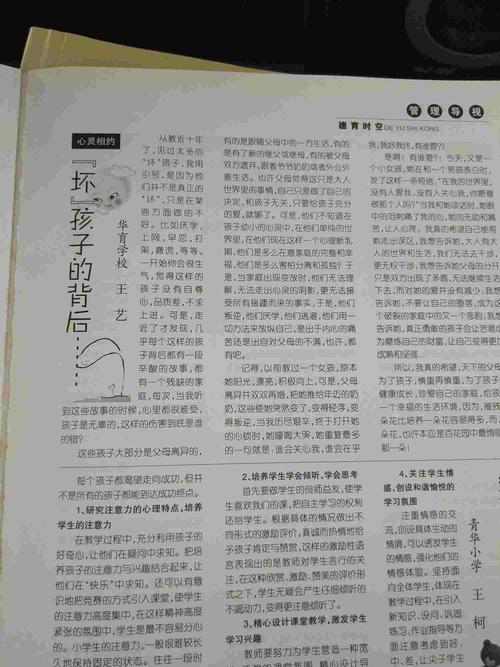 管理导视
德育时空 DE YU SHI KONG
心灵相约
“坏”孩子的背后……
华育学校 王 艺
从教近十年
了，见过太多的
“坏”孩子，我用
引号，是因为他
们并不是真正的
“坏”，只是在某
些方面做的不
好。比如厌学，
上网，早恋，打
架，撒谎，等等。
一开始你会很生
气，觉得这样的
孩子没有自尊
心，品质差，不求
上进。可是，走
近了才发现，几
乎每个这样的孩
子背后都有一段
辛酸的故事，都
有一个残缺的家
庭，每次，当我听
到这些故事的时候，心里都很难受，
孩子是无辜的，这样的伤害到底是谁
的错？
这些孩子大部分是父母离异的，
有的是跟随父母中的一方生活，有的
是有了新的继父或继母，有的被父母
双方遗弃，跟着爷爷奶奶或者外公外
婆生活。也许父母觉得这只是大人
世界里的事情，自己只是做了自己的
决定，和孩子无关，只要给孩子充分
的爱，就够了。可是，他们不知道在
孩子幼小的心灵中，在他们单纯的世
界里，在他们现在这样一个心理断乳
期，他们是多么在意家庭的完整和幸
福，他们是多么害怕分离和孤独？于
是，当家庭出现变故时，他们无法理
解，无法走出心灵的阴影，更无法接
受所有接踵而来的事实，于是，他们
叛逆，他们厌学，他们逃避，他们用一
切方法来放纵自己，是出于内心的痛
苦还是出自对父母的不满，也许，都
有吧。
记得，以前教过一个女孩，原本
她阳光，漂亮，积极向上，可是，父母
离异并双双再婚，把她推给年迈的奶
奶，这些使她突然变了，变得轻浮，变
得叛逆，当我历尽艰辛，终于打开她
的心锁时，她嚎啕大哭，她重复最多
的一句就是：谁会关心我，谁会在乎
我，我好我坏，有谁管？？
是啊！有谁管？！今天，又是一
个小女孩，她在和一个男孩表白时，
发了这样一条短信，“在我的世界里，
没有人爱我，没有人关心我，你愿意
做那个人吗？”当我和她谈话时，她眼
中的泪刺痛了我的心，她的无助和痛
苦，让人心疼。我真的希望自己能帮
她走出误区，我想告诉她，大人有大
人的世界和生活，我们无法去干涉，
更无权干涉；我想告诉她父母的分开
只是双方出现了矛盾，无法继续生活
下去，而对她的爱并没有减少；我想
告诉她，不要让自己的堕落，成为这
个破裂的家庭中的又一个悲剧；我想
告诉她，真正勇敢的孩子会让苦难成
为磨练自己的财富，让自己变得更加
成熟和坚强…
所以，我真的希望，天下的父母
为了孩子，慎重再慎重，为了孩子
健康成长，珍爱自己的家庭，给孩
一个幸福的生活环境，因为，摧残
朵花比培养一朵花容易得多，而
朵花，也许本应是百花园中最娇
那一朵！
每个孩子都渴望走向成功，但并
不是所有的孩子都能到达成功终点。
1、研究注意力的心理特点，培养
学生的注意力
在教学过程中，充分利用孩子的
好奇心，让他们在疑问中求知。把培
养孩子的注意力与兴趣结合起来，让
他们在“快乐”中求知。还可以有意
识地把竞赛的方式引入课堂，使学生
的注意力高度集中，在这样精神高度
紧张的氛围中，学生是最不容易分心
的。小学生的注意力，一般很难较长
久地保持固定的状态。在往在一段时
2、培养学生学会倾听，学会思考
首先要做学生的良师益友，使学
生喜欢我们的课，把自主学习的权利
还给学生。根据具体的情况做出不
同形式的激励评价，真诚而热情地给
予孩子肯定与赞赏，这样的激励性语
言表现出的是教师对学生言行的关
注，在这种欣赏、激励、赞美的评价形
式之下，学生无疑会产生仔细倾听的
不竭动力，变得更注意倾听了。
3、精心设计课堂教学，激发学生
学习兴趣
教师要努力为学生营造一种宽
4、关注学生情
感，创设和谐愉悦的
学习氛围
注重情感的交
流，创设具体生动的
情境，可以诱发学生
的情感，强化他们的
情感体验。坚持面
向全体学生，体现在
教学过程中，在引入
新知识、设问、巩固
练习、作业指导等方
面注意考虑到好、
中、差，让尖子学生
青华小学 王 柯